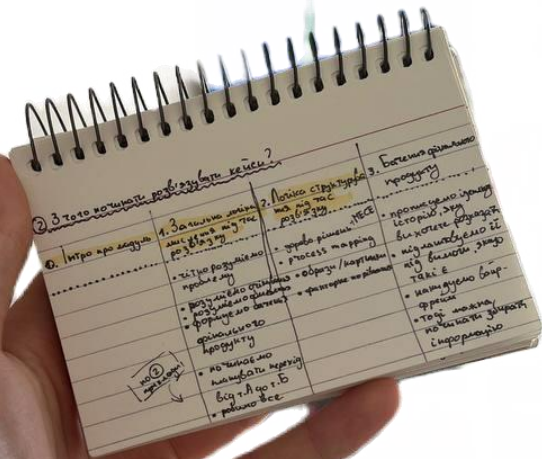 ② З чого починати розв'язувати кейси?
0. Інтро про модуль
1. Загальна логіка
мислення під час
розв'язку
• чітко розуміємо
проблему
• розуміємо
• розуміємо
• формуємо бачення
фінального
продукту
• починаємо
планувати перехід
від т. А до т. Б
• робимо все
по ②
2. Логіка структурува
ння під час
розв'язку
• дерево рішень
MECE
• process mapping
• образи/картинки
• факторне
3. Бачення фінального
продукту
• прописуємо ідеальну
історію, яку
ви хочете розказати
• підлаштовуємо її
під вимоги, якщо
такі є
• накидуємо вайр-
фрейм
• тоді можна
починати збирати
інформацію